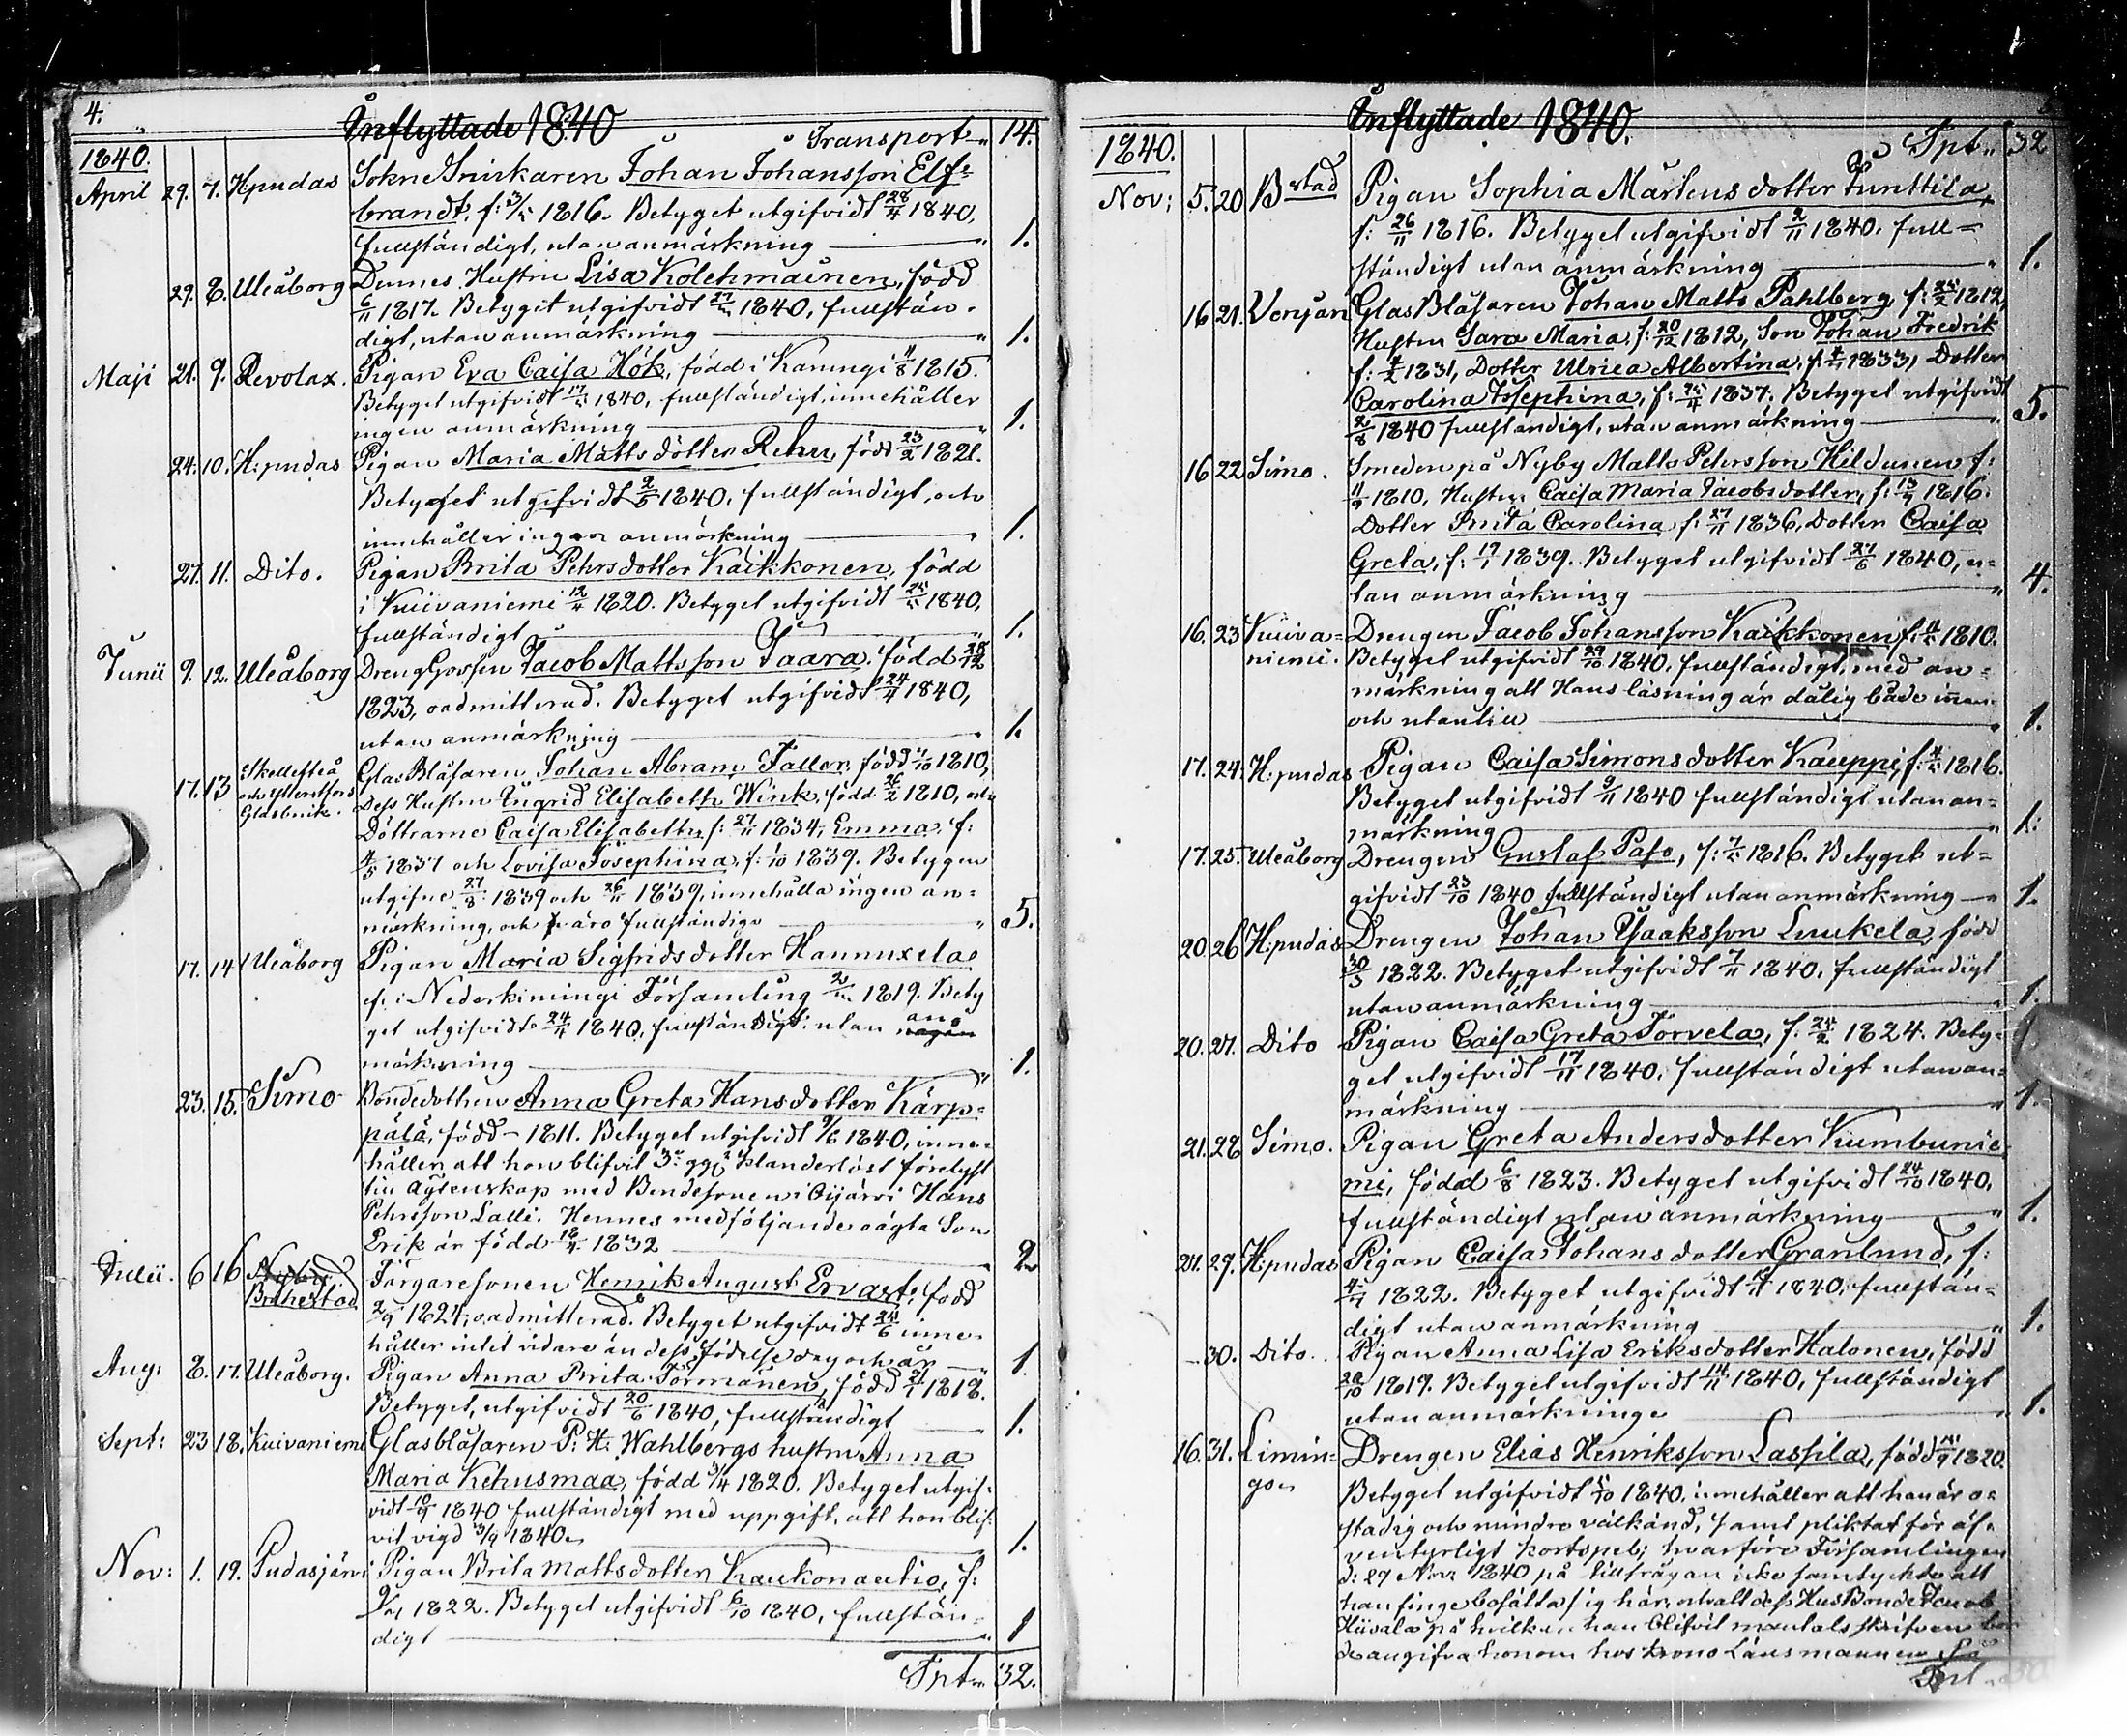 4.
Inflyttade 1840
Transport 14.
1840.
April 29. 7. H:pudas Sokne Snickaren Johan Johansson Elf=
brandt, f: 3/5 1816. Betyget utgifvidt 28/4 1840,
fullständigt, utan anmärkning 1.
29. 8. Uleåborg Dennes Hustru Lisa Kolehmainen, född
6/11 1817. Betyget utgifvidt 1840, fullstän-
digt, utan anmärkning 1.
Maji 21. 9. Revolax. Pigan Eva Caisa Hök, född i Kaningi 4/8 1815.
Betyget utgifvidt 17/5 1840, fullständigt, innehåller
ingen anmärkning 1.
24. 10. H:pudas Pigan Maria Matts dotter Rehu, född 23/2 1821.
Betyget utgifvidt 2/5 1840, fullständigt, och
innehåller ingen anmärkning 1.
27. 11. Dito. Pigan Brita Pehrsdotter Kaikkonen, född
i Kuivaniemi 12/4 1820. Betyget utgifvidt 25/5 1840,
fullständigt 1.
Junii 9. 12. Uleåborg DrengGossen Jacob Mattsson Taara, född 28/12
1823, oadmitterad. Betyget utgifvidt 24/4 1840,
utan anmärkning 1.
17. 13 Skellefteå GlasBlåsaren Johan Abram Faller, född 1/10 1810,
och Ytterstfors Dess Hustru Ingrid Elisabeth Wink, född 26/2 1810, och
Glasbruk. Döttrarne Caisa Elisabeth, f: 27/11 1834, Emma, f:
4/5 1837 och Lovisa Josephina, f: 1/10 1839. Betygen
utgifne 27/8 1839 och 26/11 1839, innehålla ingen an=
märkning, och äro fullständiga 5.
17. 14 Uleåborg Pigan Maria Sigfridsdotter Hannuxela
f. i Nederkimingi Församling 1819. Bety
get utgifvidt 24/4 1840, fullständigt: utan an=
märkning 1.
23. 15. Simo Bondedottren Anna Greta Hansdotter Kärp=
pälä, född - 1811. Betyget utgifvidt 9/6 1840, inne-
håller att hon blifvit 3ne ggr klanderlöst förelyst
till ägtenskap med Bondesonen i Oijärvi Hans
Pehrsson Lalli. Hennes medföljande oägta Son
Erik är född 18/4 1832 2
Julii. 6 16 Brahestad Färgaresonen Henrik August Ervast, född
2/9 1824, oadmitterad. Betyget utgifvidt 24/6 inne-
håller intet vidare än dess födelse dag och år 1
Aug: 8. 17. Uleåborg. Pigan Anna Brita Törmänen, född 1818.
Betyget, utgifvidt 20/6 1840, fullständigt 1.
Sept: 23 18. Kuivaniemi Glasblåsaren P: H: Wahlbergs hustru Anna
Maria Kehusmaa, född 3/4 1820. Betyget utgif-
vidt 10/9 1840 fullständigt med uppgift, att hon blif-
vit vigd 3/9 1840 1.
Nov: 1. 19. Pudasjärvi Pigan Brita Mattsdotter Kaukonautio, f:
1822. Betyget utgifvidt 6/10 1840, fullstän-
digt 1
Trt. 32.
Inflyttade 1840.
Tpt. 32
1840.
Nov: 5. 20 Bstad Pigan Sophia Mårtensdotter Junttila,
f: 26/11 1816. Betyget utgifvidt 2/11 1840. full=
ständigt utan anmärkning 1.
16 21. GlasBlåsaren Johan Matts Pahlberg, f: 25/2 1812,
Hustru Sara Maria, f: 20/12 1812, Son Johan Fredrik
f: 1831, Dotter Ulrica Albertina, f: 1833, Dotter
Carolina Josephina, f: 25/4 1837. Betyget utgifvidt
2/8 1840 fullständigt, utan anmärkning 5.
16 22 Simo. Smeden på Nyby Matts Pehrsson Hildunen f:
11/9 1810, Hustru Caisa Maria Jacobsdotter, f: 1816.
Dotter Brita Carolina f: 27/11 1836, Dotter Caisa
Greta, f: 17/1 1839. Betyget utgifvidt 27/6 1840, u=
tan anmärkning 4.
16. 23 Kuiva= Drengen Jacob Johansson Kaikkonen f: 1810.
niemi. Betyget utgifvidt 29/10 1840, fullständigt, med an=
märkning att Hans läsning är dålig både innan
och utantill 1.
17. 24. H:pudas Pigan Caisa Simonsdotter Kauppi, f: 1816.
Betyget utgifvidt 9/11 1840 fullständigt utan an=
märkning 1.
17. 25. Uleåborg Drengen Gustaf Paso, f: 7/5 1816. Betyget ut=
gifvidt 23/10 1840 fullständigt utan anmärkning 1.
20. 26 H:pudas Drengen Johan Ysaaksson Luukela, född
30/5 1822. Betyget utgifvidt 7/11 1840, fullständigt
utan anmärkning 1.
20. 27. Dito Pigan Caisa Greta Torvela, f: 24/2 1824. Bety=
get utgifvidt 17/11 1840, fullständigt utan an=
märkning 1.
21. 28 Simo. Pigan Greta Andersdotter Kumbunie
mi, född 6/8 1823. Betyget utgifvidt 24/10 1840,
fullständigt utan anmärkning 1.
21. 29. H:pudas Pigan Caisa Johansdotter Granlund, f:
1822. Betyget utgifvidt 1840, fullstän=
digt utan anmärkning 1.
30. Dito. Pigan Anna Lisa Eriksdotter Halonen, född
1819. Betyget utgifvidt 14/11 1840, fullständigt
utan anmärkninge 1.
16. 31. Limin= Drengen Elias Henriksson Lassila, född 1820.
go. Betyget utgifvidt 1840. innehåller att han är o=
stadig och mindre välkänd, samt pliktat för äf-
ventyrligt kortspel; hvarföre Församlingen
d: 29 Nov: 1840 på tillfrågan icke samtyckte att
han finge bosätta sig här, utan att dess HusBonde Jacob
Hiivala på hvilken han blifvit mantalsskrifven bor
de angifva honom hos Krono Länsmannen
Trt.